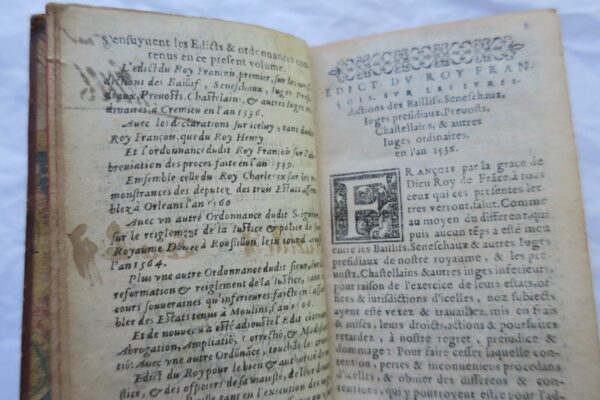 S'ensuyuent les Edicts & ordonnances con-
tenus en ce present volume.
L'edict du Roy François premier, sur les iuris-
dictions des Baillifs, Seneschaux, Iuges Presi-
diaux, Preuosts, Chastelain, & autres Iuges ordi-
naires, à Cremieu en l'an 1536.
Auec les declarations sur iceluy, tant dudit
Roy François, que du Roy Henry
Et l'ordonnance dudit Roy François sur l'ab-
breuiation des proces faite en l'an 1539.
Ensemble celle du Roy Charles ix sur les re-
monstrances des deputez des trois Estats assem-
blez à Orleans l'an 1560
Auec vn autre Ordonnance dudit Seigneur
sur le reiglement de la Iustice & police de son
Royaume Donée à Rousillon, le ix iour d'aoust
l'an 1564.
Plus vne autre Ordonnance dudit sieur, sur la
reformation & reiglement de la Iustice, tant és
cours souueraines qu'inferieures: faicte en l'assem-
blee des Estats tenus à Moulins, l'an 1566.
Et de nouueau a esté adiousté l'Edict
Abrogation, Ampliatiō, Correctiō, & Modifi
Auec vne autre Ordonāce, touchāt la
Edict du Roy pour le bien & authorité de
& des officiers de sa maiesté, de leur
tant en l'execution des iuge
3
EDICT DV ROY FRAN-
ÇOIS, SVR LES IVRIS-
dictions des Baillifs, Seneschaux,
Iuges presidiaux, Preuosts,
Chastellains, & autres
Iuges ordinaires,
en l'an 1538.
FRANÇOIS par la grace de
Dieu Roy de Frāce, à tous
ceux qui ces presentes let-
tres verrōt, salut. Comme
au moyen du different, qui
puis aucun tēps a esté meu
entre les Baillifs, Seneschaux & autres Iuges
presidiaux de nostre royaume, & les pre-
uosts, Chastellains & autres iuges inferieurs,
pour raison de l'exercice de leurs estats, of-
fices & iurisdictions d'icelles, noz subiects
ayent esté vexez & trauaillez, mis en frais
& mises, leurs droicts, actions & poursuites
retardez, à nostre regret, preiudice &
dommage: Pour faire cesser laquelle con-
tention, pertes & inconueniens procedans
d'icelles, & obuier des differens & con-
tentions, qui y pourroyent estre pour l'ad-